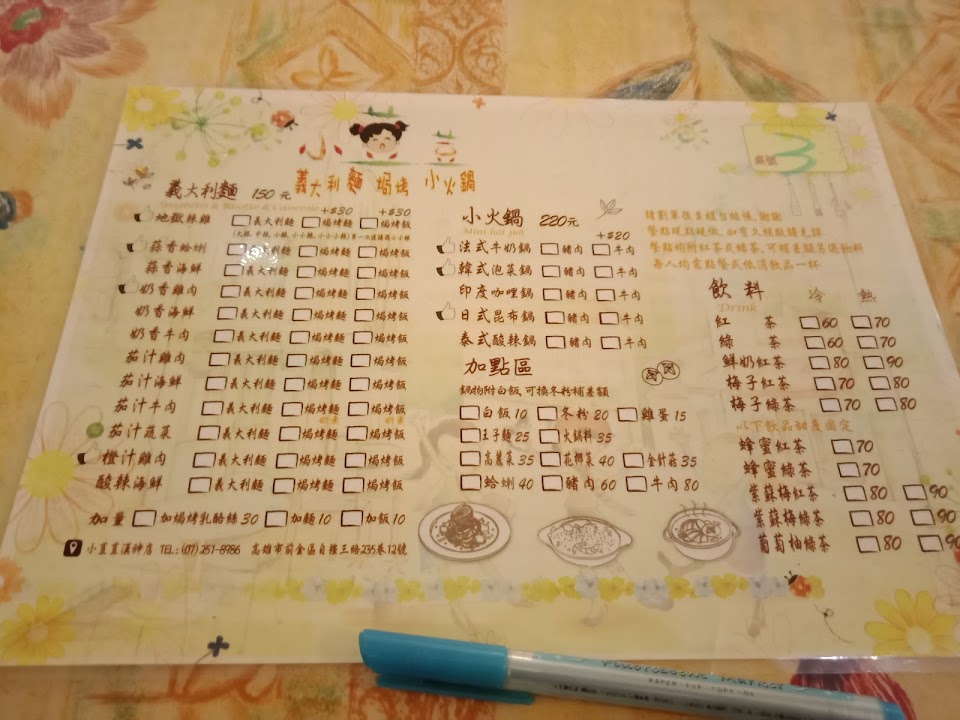 小
義大利麵 焗烤 小火鍋
桌號 3
義大利麵 150元
+$30 +$30
地獄辣雞 義大利麵 焗烤麵 焗烤飯
蒜香蛤蜊 義大利麵 焗烤麵 焗烤飯
蒜香海鮮 義大利麵 焗烤麵 焗烤飯
奶香雞肉 義大利麵 焗烤麵 焗烤飯
奶香海鮮 義大利麵 焗烤麵 焗烤飯
奶香牛肉 義大利麵 焗烤麵 焗烤飯
茄汁雞肉 義大利麵 焗烤麵 焗烤飯
茄汁海鮮 義大利麵 焗烤麵 焗烤飯
茄汁牛肉 義大利麵 焗烤麵 焗烤飯
茄汁蔬菜 義大利麵 焗烤麵 焗烤飯
橙汁雞肉 義大利麵 焗烤麵 焗烤飯
酸辣海鮮 義大利麵 焗烤麵 焗烤飯
加量 加焗烤乳酪絲30 加麵10 加飯10
小荳荳漢神店 TEL:(07)251-8986 高雄市前金區自強三路235巷12號
小火鍋 220元
Mini hot pot
+$20
法式牛奶鍋 豬肉 牛肉
韓式泡菜鍋 豬肉 牛肉
印度咖哩鍋 豬肉 牛肉
日式昆布鍋 豬肉 牛肉
泰式酸辣鍋 豬肉 牛肉
加點區
鍋物附白飯 可換冬粉補差額
白飯10 冬粉20 雞蛋15
王子麵25 火鍋料35
高麗菜35 花椰菜40 金針菇35
蛤蜊40 豬肉60 牛肉80
請劃單後至櫃台結帳,謝謝
餐點現點現做,如有久候敬請見諒
餐點均附紅茶或綠茶,可補差額另選飲料
每人均需點餐或低消飲品一杯
飲料 冷 熱
Drink
紅茶 60 70
綠茶 60 70
鮮奶紅茶 80 90
梅子紅茶 70 80
梅子綠茶 70 80
以下飲品甜度固定
蜂蜜紅茶 70
蜂蜜綠茶 70
紫蘇梅紅茶 80 90
紫蘇梅綠茶 80 90
葡萄柚綠茶 80 90